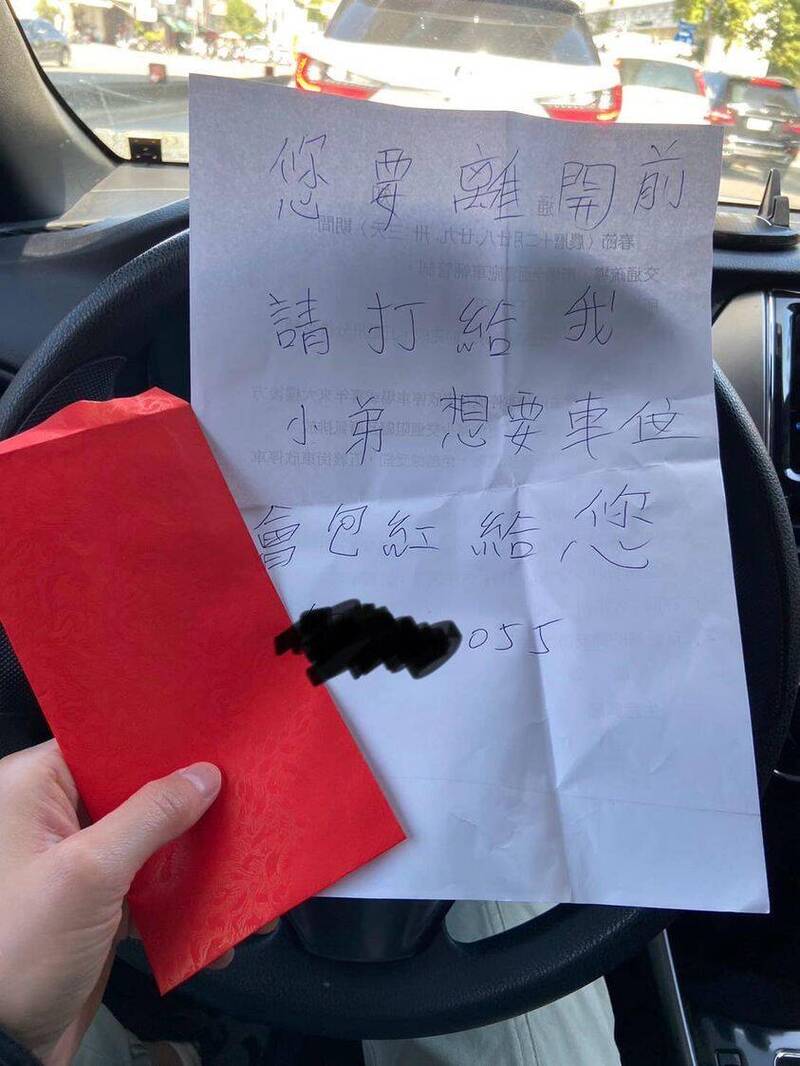 您要離開前
請打給我
小弟 想要車位
會包紅給您
055